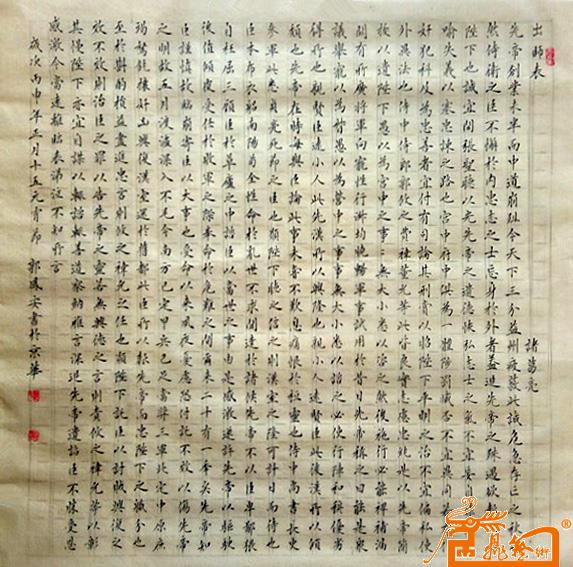 出師表
諸葛亮
先帝創業未半而中道崩殂今天下三分益州疲弊此誠危急存亡之秋也
然侍衛之臣不懈於內忠志之士忘身於外者蓋追先帝之殊遇欲
陛下也誠宜開張聖聽以光先帝之遺德恢弘志士之氣不宜妄
喻失義以塞忠諫之路也宮中府中俱為一體陟罰臧否不宜異同若
奸犯科及為忠善者宜付有司論其刑賞以昭陛下平明之治不宜偏私使
外異法也侍中侍郎郭攸之費禕董允等此皆良實志慮忠純是以先帝簡
拔以遺陛下愚以為宮中之事事無大小悉以咨之然後施行必能裨補闕漏
有所廣益將軍向寵性行淑均曉暢軍事試用於昔日先帝稱之曰能是以眾
議舉寵以為督愚以為營中之事事無大小悉以諮之必能使行陣和穆優劣
得所也親賢臣遠小人此先漢所以興隆也親小人遠賢臣此後漢所以傾
頹也先帝在時每與臣論此事未嘗不歎息痛恨於桓靈也侍中尚書長史
參軍此悉貞亮死節之臣也願陛下親之信之則漢室之隆可計日而待也
臣本布衣躬耕南陽苟全性命於亂世不求聞達於諸侯先帝不以臣卑鄙猥
自枉屈三顧臣於草廬之中諮臣以當世之事由是感激遂許先帝以驅馳
後值傾覆受任於敗軍之際奉命於危難之間爾來二十有一年矣先帝知
臣謹慎故臨崩寄臣以大事也受命以來夙夜憂慮恐付託不效以傷先帝
之明故五月渡瀘深入不毛今南方已定甲兵已足當獎三軍北定中原庶
竭駑鈍攘除奸凶興復漢室還於舊都此臣所以報先帝而忠陛下之職分也
至於斟酌損益進盡忠言則攸之禕允之任也願陛下託臣以討賊興復之
效不效則治臣之罪以告先帝之靈若無興德之言則責攸之禕允等以彰
其慢陛下亦宜自謀以諮諏善道察納雅言深追先帝遺詔臣不勝受恩
感激今當遠離臨表涕泣不知所言
歲次丙申年三月十五元宵節 郭鳳安書於京華